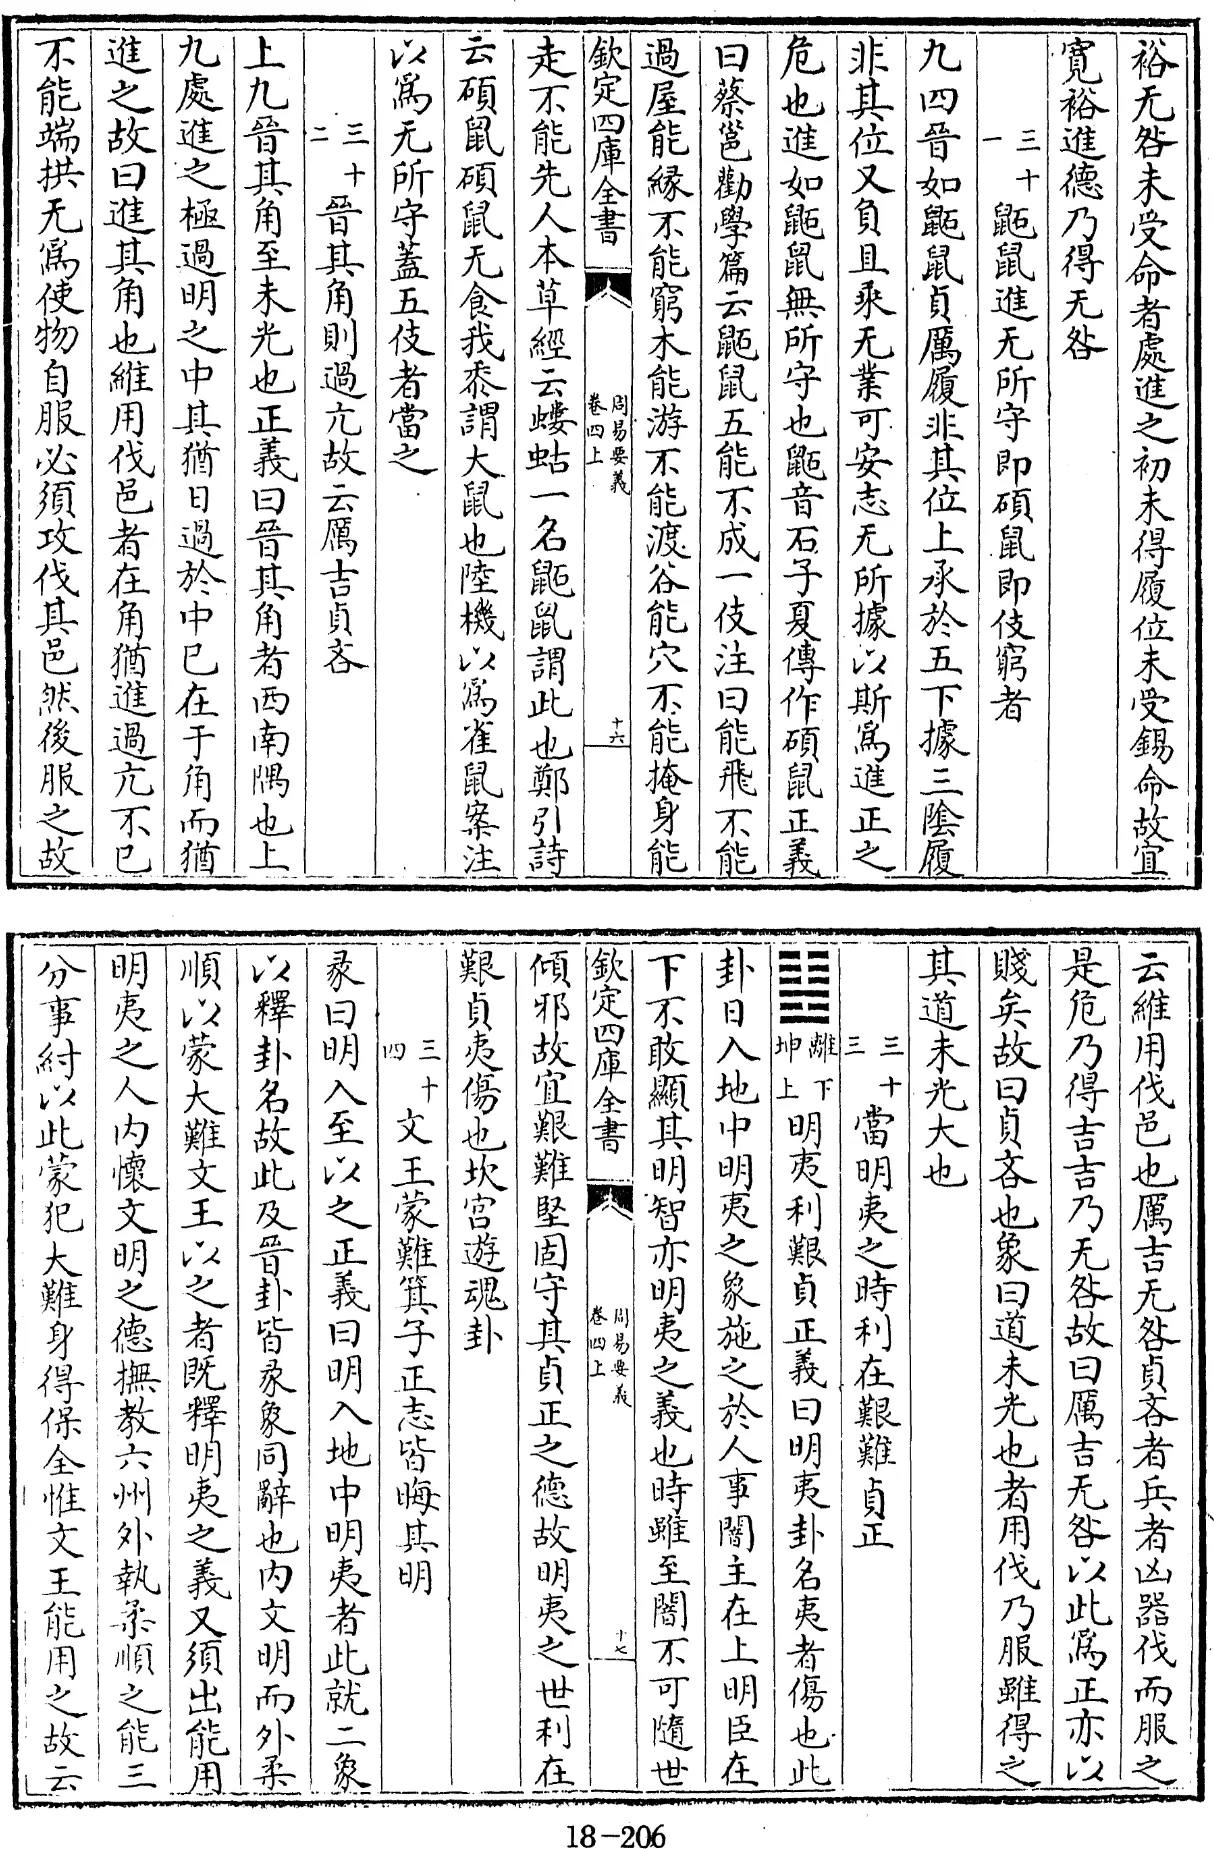 裕无咎未受命者處進之初未得履位未受錫命故宜
寛裕進德乃得无咎
三十一
鼫鼠進无所守即碩鼠即伎窮者
九四晉如鼫鼠貞厲履非其位上承於五下據三隂履
非其位又負且乘无業可安志无所據以斯爲進正之
危也進如鼫鼠無所守也鼫音石子夏傳作碩鼠正義
曰蔡邕勸學篇云鼫鼠五能不成一伎注曰能飛不能
過屋能縁不能窮木能游不能渡谷能穴不能掩身能
欽定四庫全書
周易要義
卷四上
十六
走不能先人本草經云螻蛄一名鼫鼠謂此也鄭引詩
云碩鼠碩鼠无食我黍謂大鼠也陸機以爲雀鼠案注
以爲无所守蓋五伎者當之
三十二
晉其角則過亢故云厲吉貞吝
上九晉其角至未光也正義曰晉其角者西南隅也上
九處進之極過明之中其猶日過於中已在于角而猶
進之故曰進其角也維用伐邑者在角猶進過亢不已
不能端拱无爲使物自服必須攻伐其邑然後服之故
云維用伐邑也厲吉无咎貞吝者兵者凶器伐而服之
是危乃得吉吉乃无咎故曰厲吉无咎以此爲正亦以
賤矣故曰貞吝也象曰道未光也者用伐乃服雖得之
其道未光大也
三十三
當明夷之時利在艱難貞正
離下
坤上
明夷利艱貞正義曰明夷卦名夷者傷也此
卦日入地中明夷之象施之於人事闇主在上明臣在
下不敢顯其明智亦明夷之義也時雖至闇不可隨世
欽定四庫全書
周易要義
卷四上
十七
傾邪故宜艱難堅固守其貞正之德故明夷之世利在
艱貞夷傷也坎宫遊魂卦
三十四
文王蒙難箕子正志皆晦其明
彖曰明入至以之正義曰明入地中明夷者此就二象
以釋卦名故此及晉卦皆彖象同辭也内文明而外柔
順以蒙大難文王以之者既釋明夷之義又須出能用
明夷之人内懷文明之德撫教六州外執柔順之能三
分事紂以此蒙犯大難身得保全惟文王能用之故云
18-206